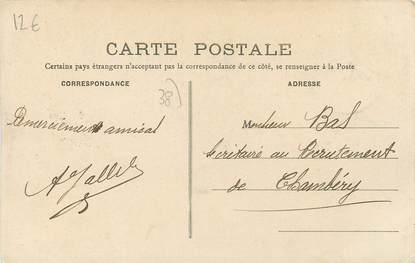 12€
CARTE POSTALE
Certains pays étrangers n'acceptent pas la correspondance de ce côté, se renseigner à la Poste
CORRESPONDANCE
ADRESSE
38)
Remerciement amical
Monsieur Bal
Secrétaire au Recrutement
de Chambéry